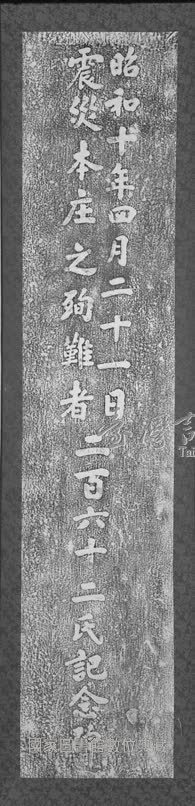 昭和十年四月二十一日
震災本庄之殉難者
二百六十二氏記念碑
國家圖書館